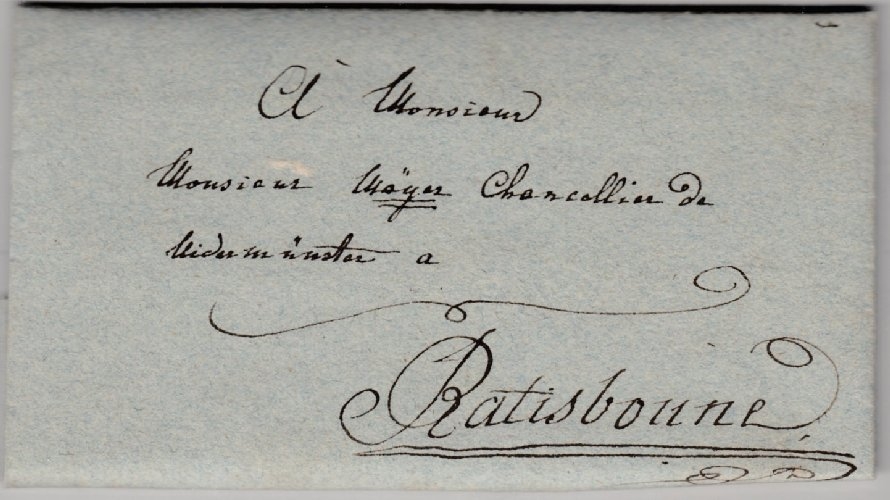 À Monsieur
Monsieur Mäÿer Chancellier de
Nidermünster a
Ratisbonne